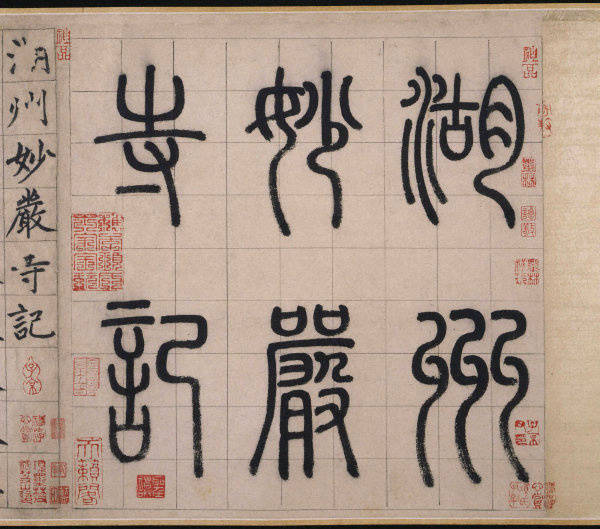 湖州
妙嚴
寺記
湖州妙嚴寺記